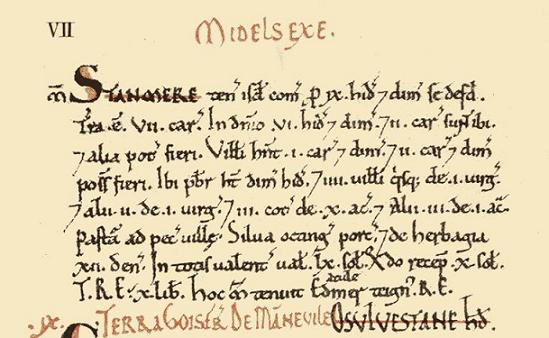 VII
MIDELSEXE.
m̄ STANMERE ten' isd' com̄ ꝓ ix. hid' ⁊ dim' se defd'.
T'ra.ē. vii. car'. In dn̄io .vi. hid' ⁊ dim' ⁊ ii. car' sunt ibi.
⁊ alia pot' fieri. Vill'i hn̄t .i. car' ⁊ dim' ⁊ ii. car' ⁊ dim'
poss' fieri. Ibi pb̄r ht' dim' hid'. ⁊ iiii. vill'i q'sq; de .i. virg'.
⁊ alii .ii. de .i. virg'. ⁊ iii. cot' de .x. ac'. ⁊ Alii .iii. de .i. ac̄.
Pasta' ad pec' ville. Silua octing' porc'. ⁊ de herbagia
xii. den'. In totis valent' ual'. lx. sol'. X do recep'. x. sol'.
T.R.E. x. lib'. Hoc m̄ tenuit Edmer atule teign' R.E.
.ix. TERRA GOISFR' DE MANEVILE OSVLVESTANE HD'.